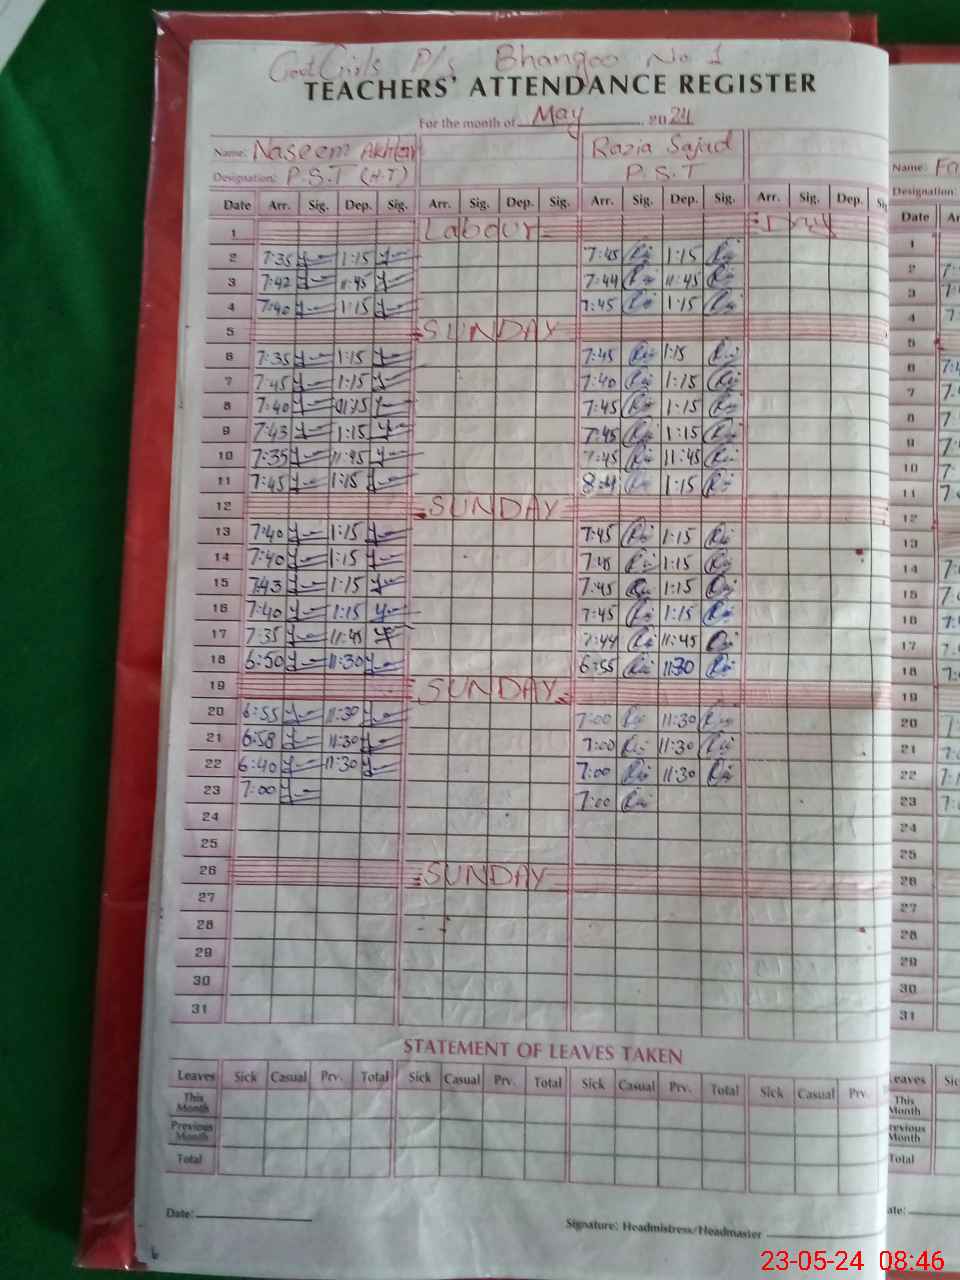 Govt Girls P/s Bhangoo No 1
TEACHERS' ATTENDANCE REGISTER
For the month of May 2024
Name: Naseem Akhtar Razia Sajad
Designation: P.S.T (H.T) P.S.T
Date Arr. Sig. Dep. Sig. Arr. Sig. Dep. Sig. Arr. Sig. Dep. Sig. Arr. Sig. Dep.
1 Labour Day
2 7:35 1:15 7:45 1:15
3 7:42 11:45 7:44 11:45
4 7:40 1:15 7:45 1:15
5 SUNDAY
6 7:35 1:15 7:45 1:15
7 7:45 1:15 7:40 1:15
8 7:40 1:15 7:45 1:15
9 7:43 1:15 7:45 1:15
10 7:35 11:45 7:45 11:45
11 7:45 1:15 1:15
12 SUNDAY
13 7:40 1:15 7:45 1:15
14 7:40 1:15 7:45 1:15
15 7:43 1:15 7:45 1:15
16 7:40 1:15 7:45 1:15
17 7:35 11:45 7:44 11:45
18 6:50 11:30 6:55 11:30
19 SUNDAY
20 6:55 11:30 7:00 11:30
21 6:58 11:30 7:00 11:30
22 6:40 11:30 7:00 11:30
23 7:00 7:00
24
25
26 SUNDAY
27
28
29
30
31
STATEMENT OF LEAVES TAKEN
Leaves Sick Casual Prv. Total Sick Casual Prv. Total Sick Casual Prv. Total Sick Casual Prv.
This Month
Previous Month
Total
Date:
Signature: Headmistress/Headmaster
Name:
Designation:
Date
1
2
3
4
5
6
7
8
9
10
11
12
13
14
15
16
17
18
19
20
21
22
23
24
25
26
27
28
29
30
31
This Month
Month
Total
23-05-24 08:46